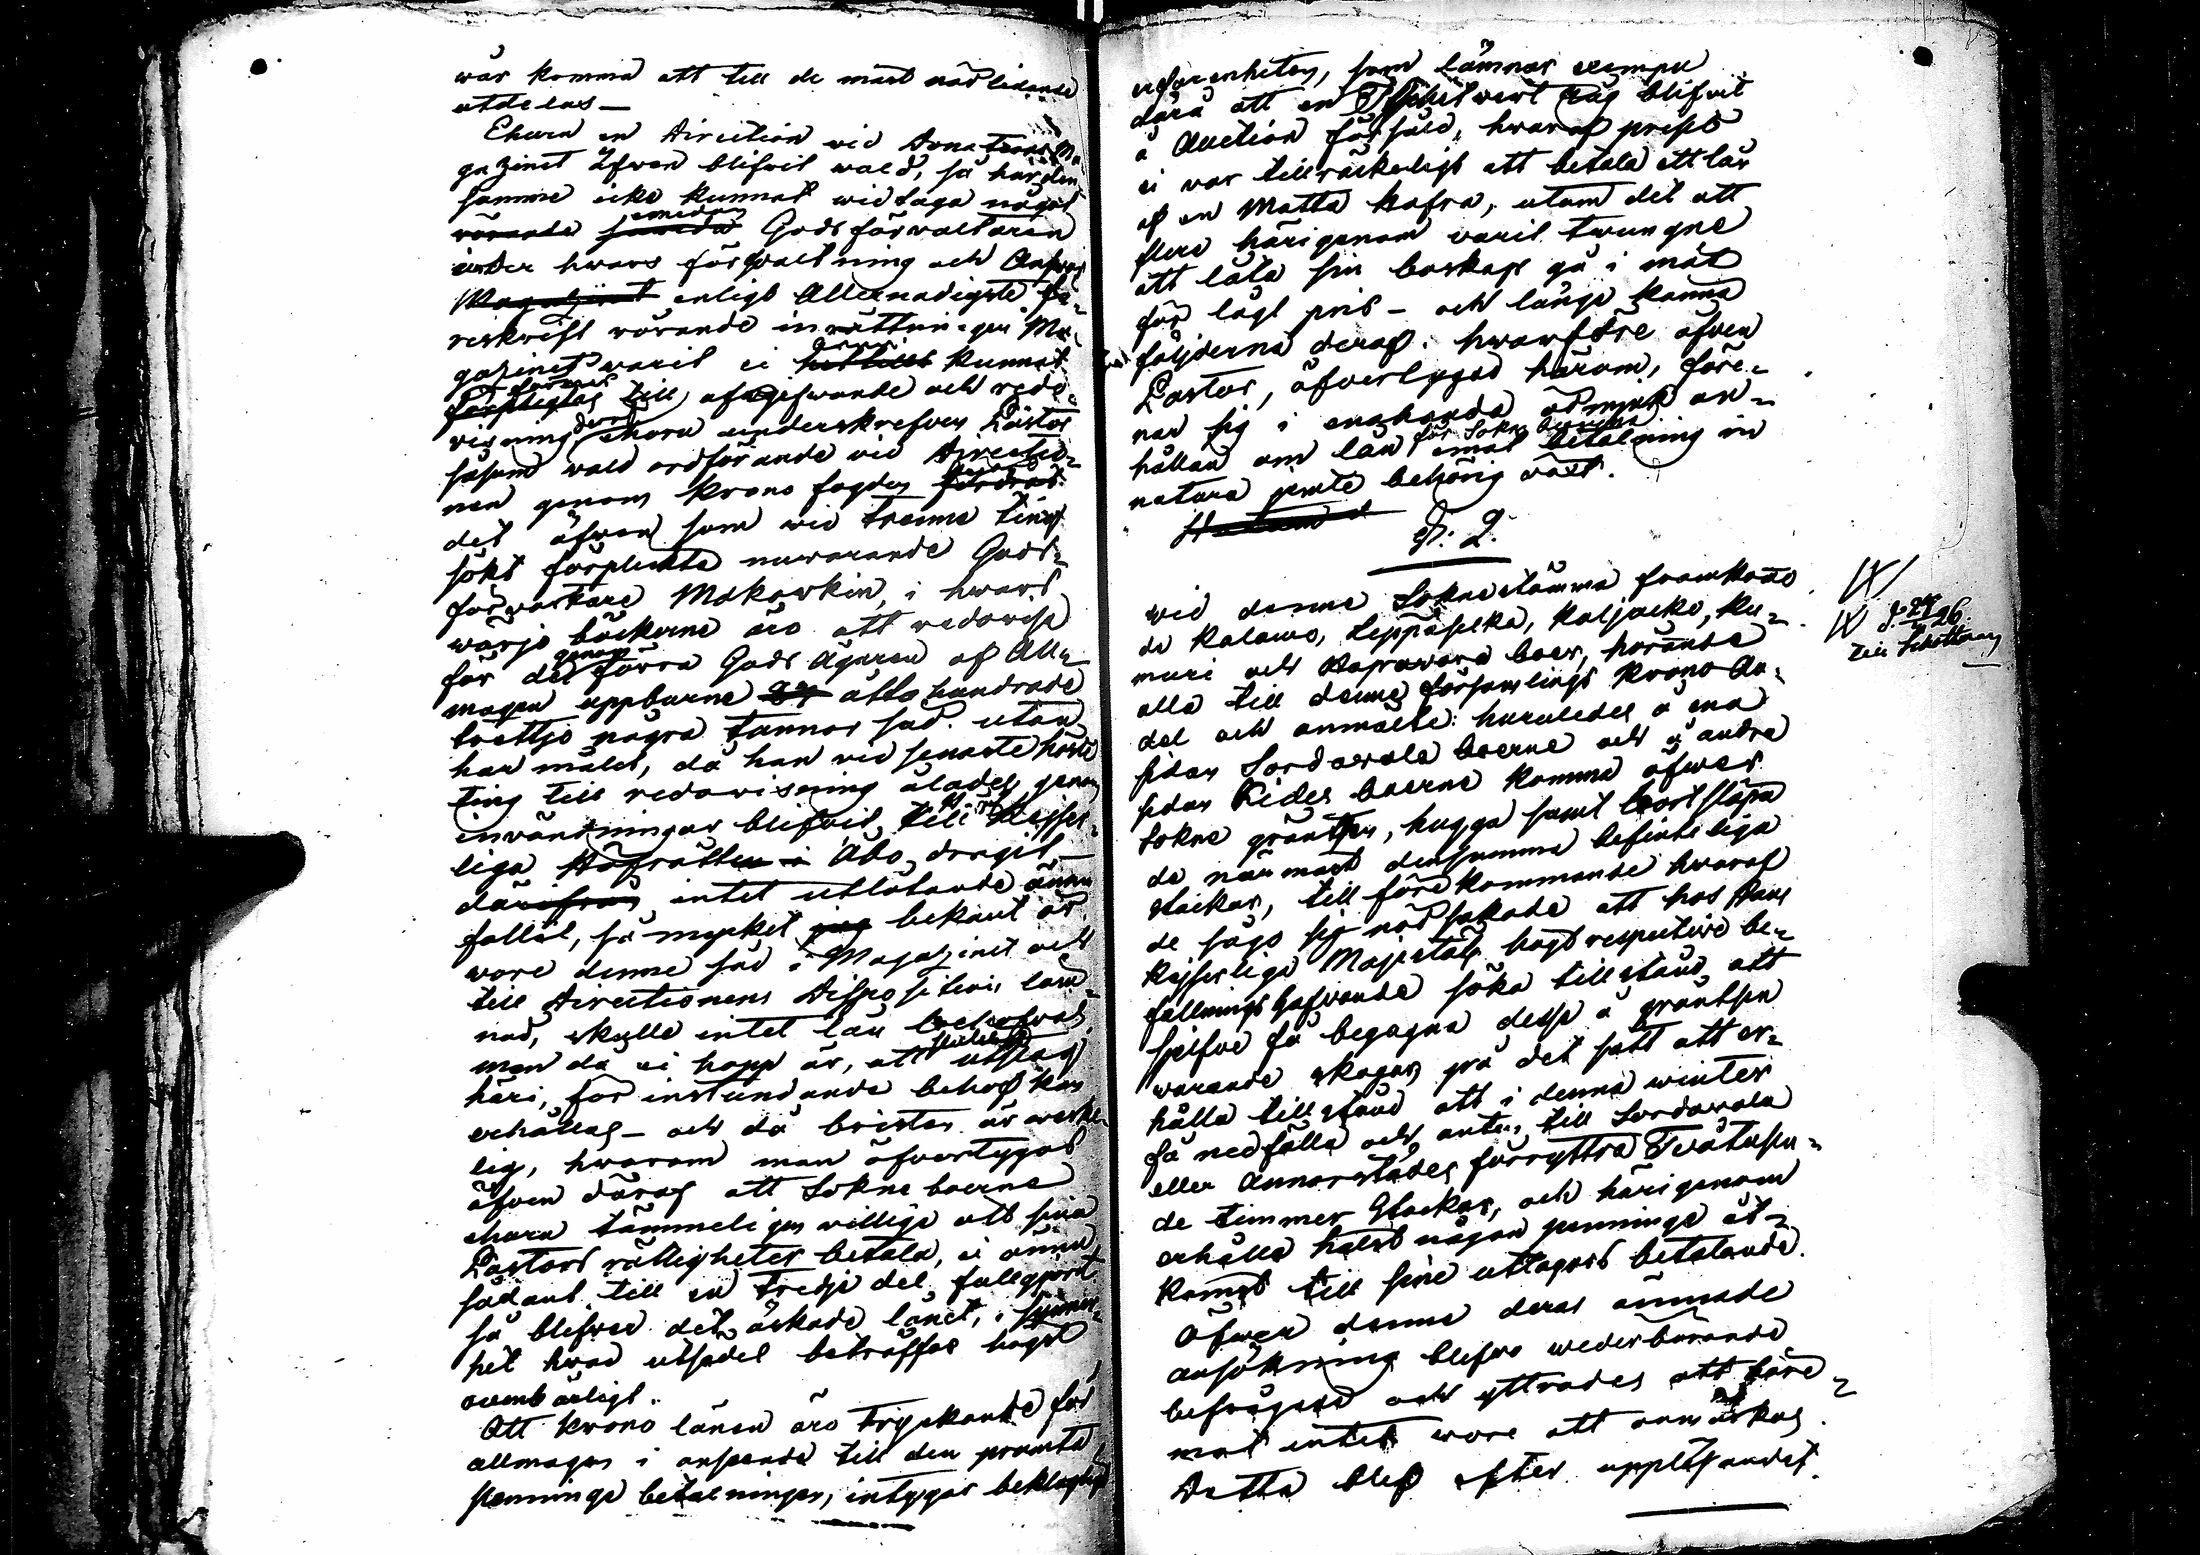 wår komma att till de mäst nödlidande
utdelas —
Ehuru en Direction vid Donations Ma-
gazinet äfven blifvit wald, så har den
samma icke kunnat widtaga något
rörande emedan Godsförvaltaren
under hwars förvaltning och Answar
Magazinet enligt Allernådigste fö-
reskrift rörande inrättningen Ma-
gazinet warit ei kunnat
förpligtas till afgifwande och redo-
visning ehuru underskrefven Pastor
såsom wald ordförande vid Directio-
nen genom Krono fogden
det äfven som vid trenne ting
sökt förplickta nuwarande Gods-
förwaltare Makarkin, i hwars
wärjo böckerne äro att redovisa
för det genom förra Gods Ägaren af Allm-
mogen uppburne åtta hundrade
trettjo några tunnor säd utan
har målet, då han vid senaste höste
ting till redovisning ålades, genom
invändningar blifvit till Kejser-
liga Hofrätten i Åbo dragit —
därifrån intet utlåtande ännu
fallit, så mycket jag bekant är.
wore denne säd i Magazinet och
till Directionens Disposition läm-
nad, skulle intet lån behöfvas
men då ei hopp är, att utslag
häri, för instundande behof kan
erhållas — och då bristen är werke-
lig, hwarom man öfvertygas
äfven däraf att Sokne boerne
ehuru tämmeligen willige att sina
Pastors rättigheter betala, ei ännu
sådant till en tredje del fullgjort
så blifver det äskade lånet, i synner-
het hwad utsädet beträffar högst
oumbärligt.
Att Krono lånen äro tryckande för
allmogen i anseende till den prompta
pennings betalningen, intygar beklaglig
erfarenheten, som lämnar exempel
därå att en Tschetwert Råg blifvit
å Auction försåld, hwaraf priset
ei var tillräckeligt att betala ett lån
af en Matta Hafra, utom det att
flere härigenom varit twungne
att låta sin boskap gå i mät
för lågt pris — och länge känna
följderna deraf. hwarföre äfven
Pastor, öfvertygad härom, före-
nar sig i enahanda ödmjuk an-
hållan om lån för Sokne boerne emot betalning in
natura på behörig växt.
§. 2.
wid denne Sokne stämma framkomo
de Kalamo, Leppäselkä, Kaljacko, Ku-
muri och Kaprawara boer, hörande
alla till denne församlings Krono An-
del och anmälte: huruledes å ena
sidan Sordavala boerne och å andra
sidan Kides boerne komma öfver
Sokne gräntsen, hugga samt bortsläpa
de närmast densamma befinteliga
stockar, till förekommande hwaraf
de sågo sig nödsakade att hos Hans
Kejserliga Majestäts högtrespective be-
fallningshafvande söka tillstånd, att
sjelfve få begagna desse å gräntsen
warande skogar på det sätt att er-
hålla tillstånd att i denna winter
få nedfälla och anten till Sordavala
eller Annorstädes föryttra Tvåtusen-
de timmer Stockar, och härigenom
erhålla hälst någon penninge åt-
komst till sine utlagors betalande.
Öfver denne deras ämnade
ansökning blefvo wederbörande
befrågade och yttrades att häre-
mot intet wore att anmärkas
Detta blef efter uppläsandet